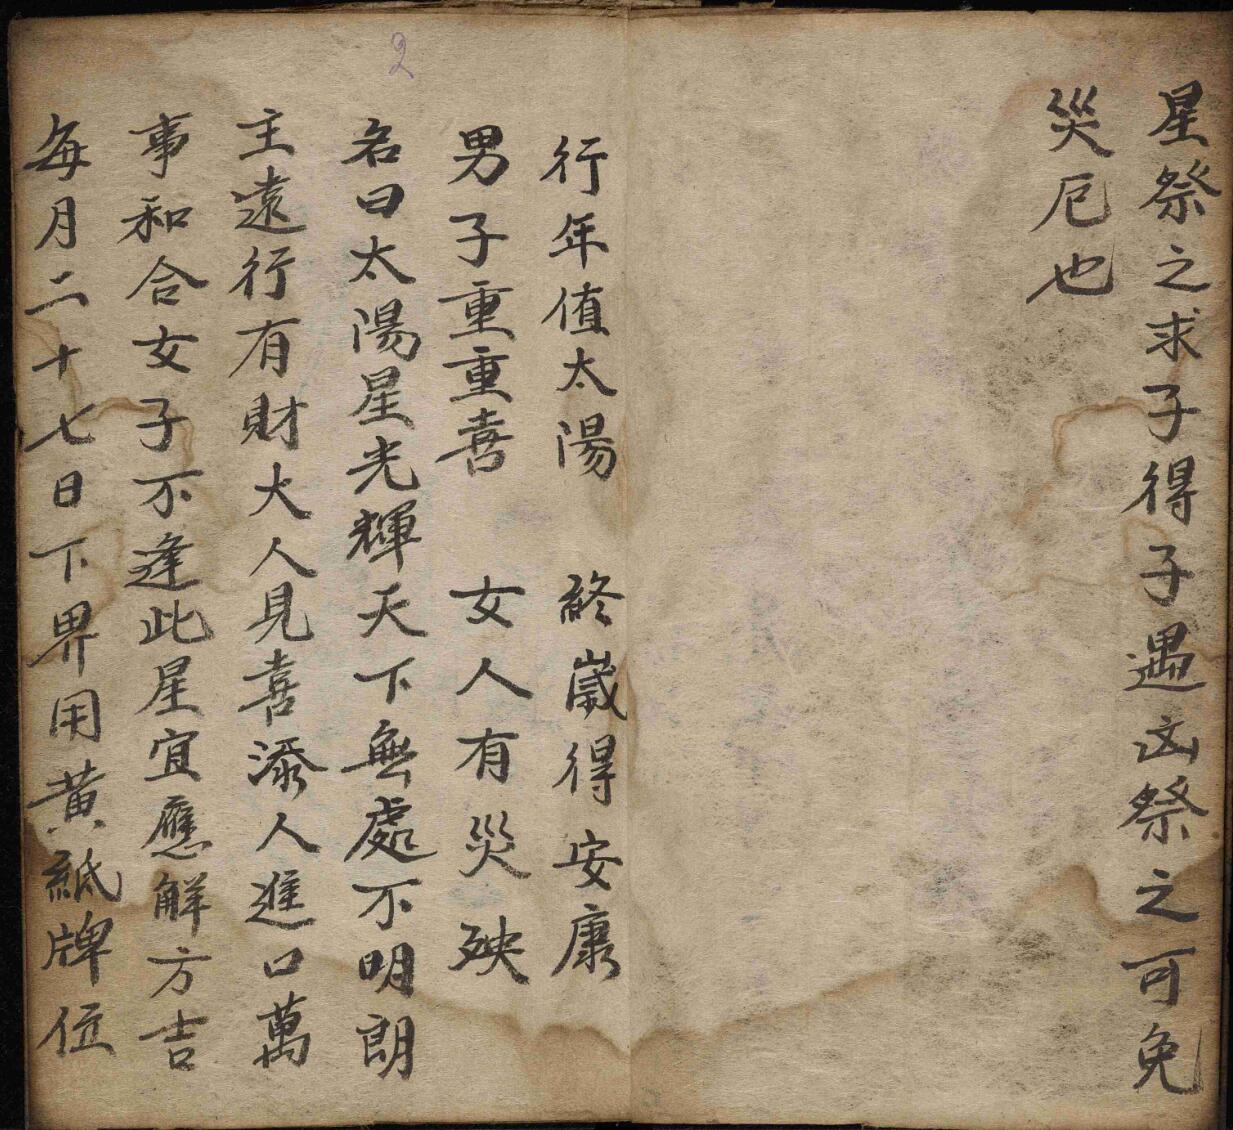 星祭之求子得子遇凶祭之可免
災厄也
行年值太陽 終歲得安康
男子重重喜 女人有災殃
名曰太陽星光輝天下無處不明朗
主遠行有財大人見喜添人進口萬
事和合女子不逢此星宜應解方吉
每月二十七日下界用黃紙牌位
2